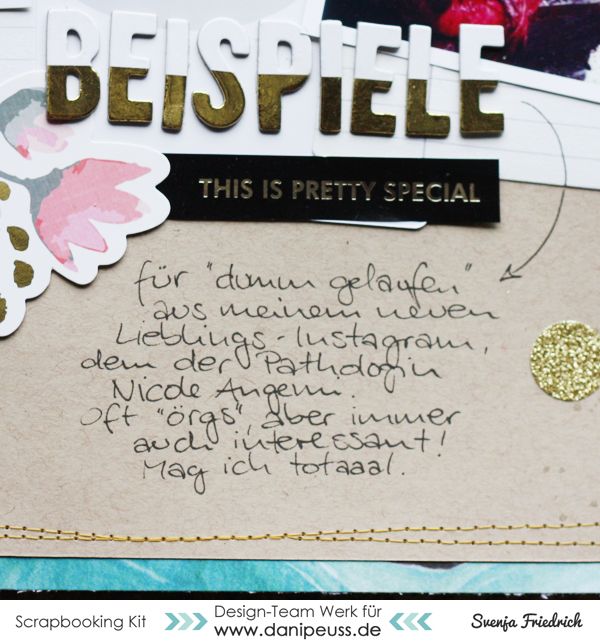 BEISPIELE
THIS IS PRETTY SPECIAL
für "dumm gelaufen"
aus meinem neuen
Lieblings-Instagram,
dem der Pathologin
Nicole Angemi.
Oft "örgs", aber immer
auch interessant!
Mag ich totaaal.
Scrapbooking Kit
Design-Team Werk für
www.danipeuss.de
Svenja Friedrich